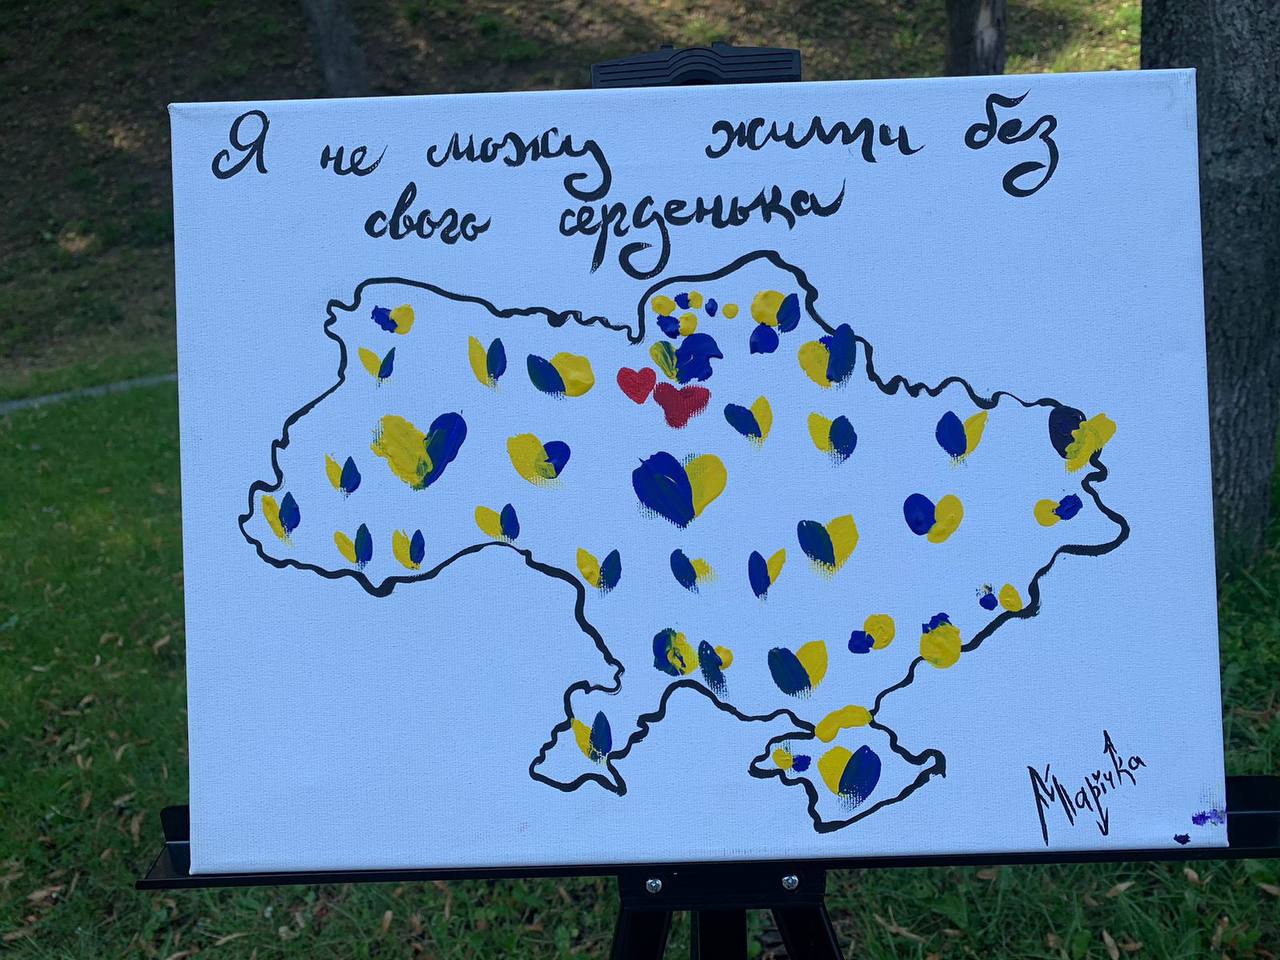 Я не можу жити без
свого серденька
Марічка